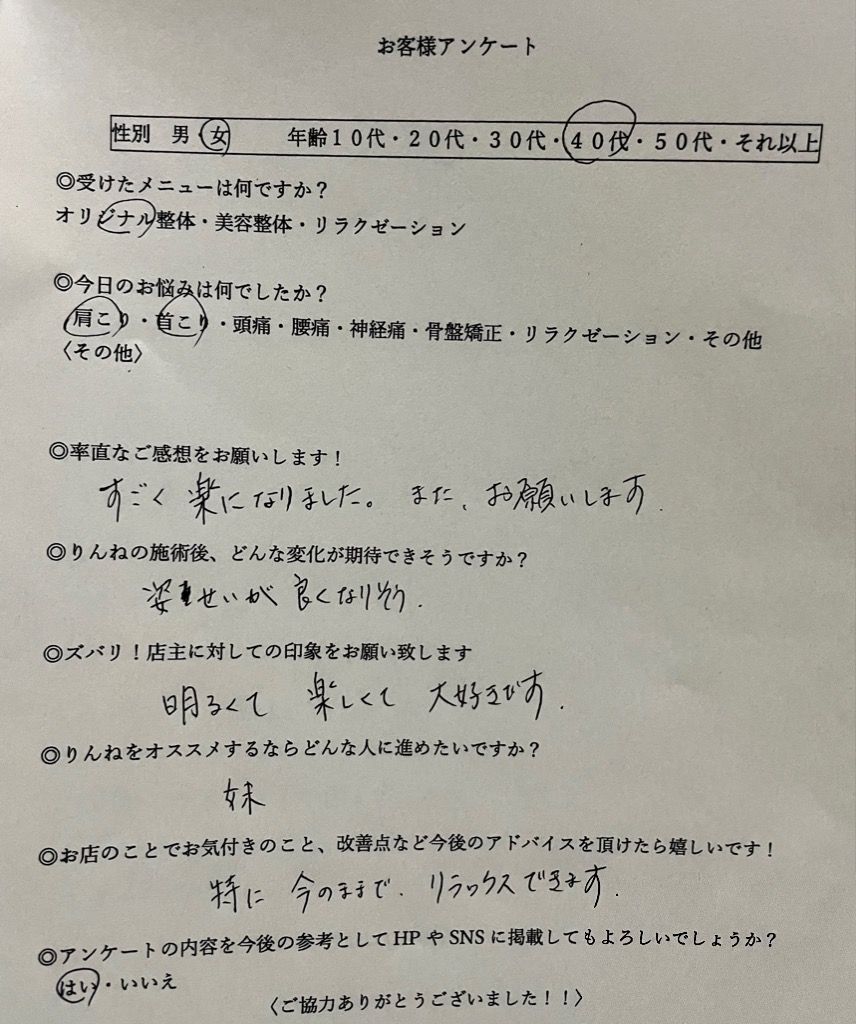 お客様アンケート
性別 男・女 年齢10代・20代・30代・40代・50代・それ以上
◎受けたメニューは何ですか？
オリジナル整体・美容整体・リラクゼーション
◎今日のお悩みは何でしたか？
肩こり・首こり・頭痛・腰痛・神経痛・骨盤矯正・リラクゼーション・その他
〈その他〉
◎率直なご感想をお願いします！
すごく楽になりました。また、お願いします.
◎りんねの施術後、どんな変化が期待できそうですか？
姿せいが良くなりそう.
◎ズバリ！店主に対しての印象をお願い致します
明るくて 楽しくて 大好きです.
◎りんねをオススメするならどんな人に進めたいですか？
妹
◎お店のことでお気付きのこと、改善点など今後のアドバイスを頂けたら嬉しいです！
特に 今のままで. リラックスできます.
◎アンケートの内容を今後の参考としてHPやSNSに掲載してもよろしいでしょうか？
はい・いいえ
〈ご協力ありがとうございました！！〉